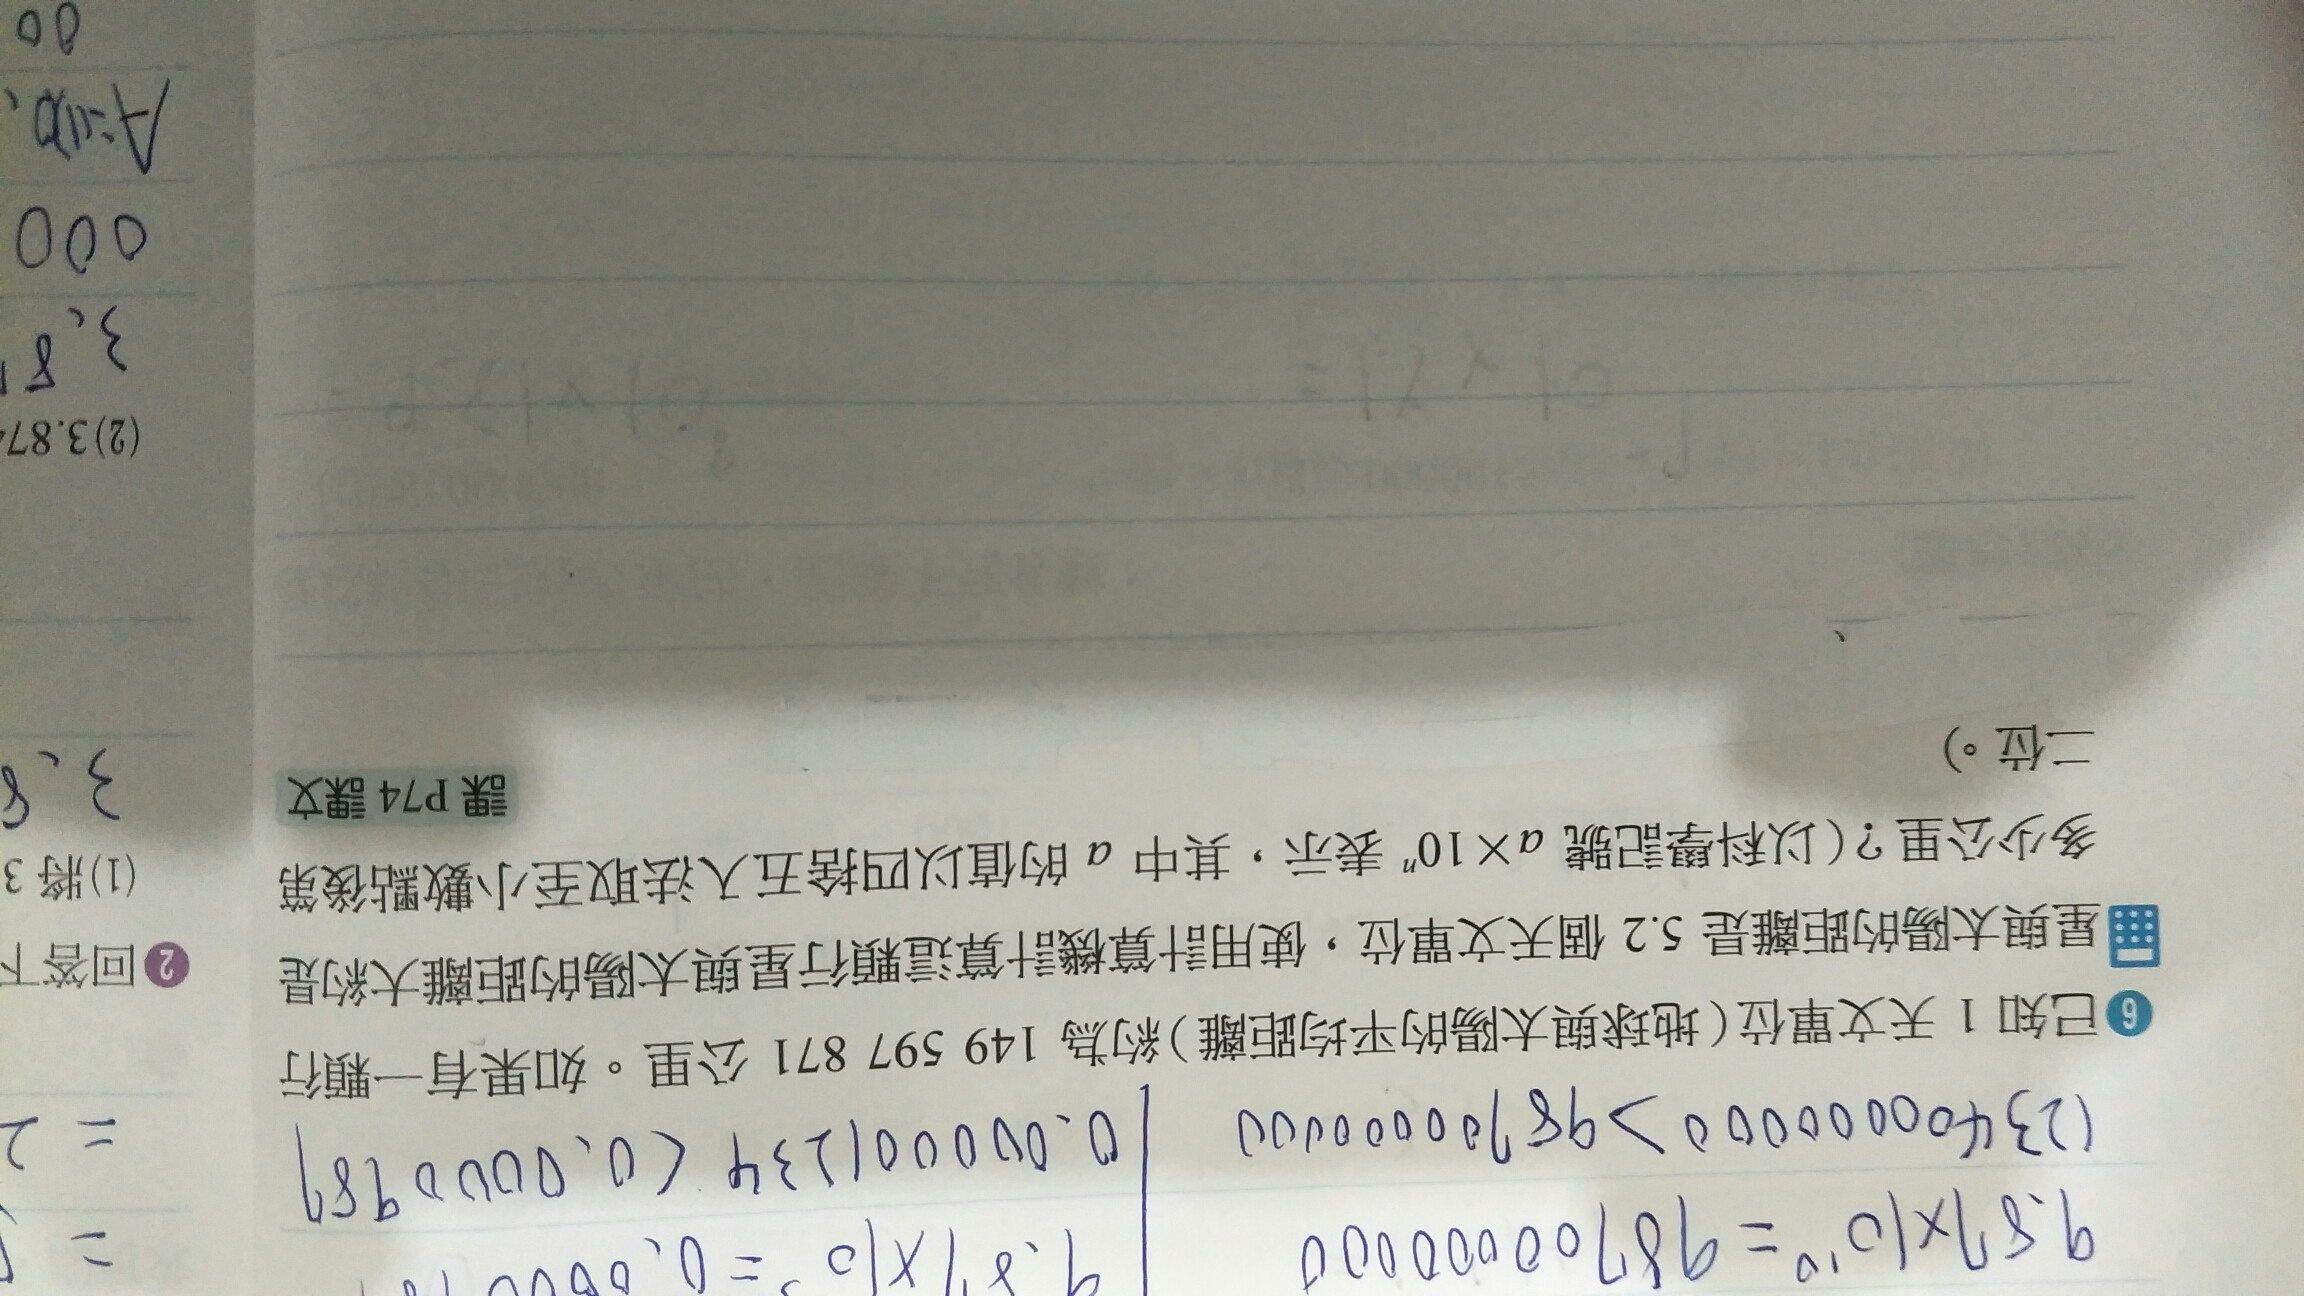 9.87×10¹⁰=98700000000
123400000000>98700000000
0.000001234<0.0000987
6 已知 1 天文單位(地球與太陽的平均距離)約為 149 597 871 公里。如果有一顆行
星與太陽的距離是 5.2 個天文單位,使用計算機計算這顆行星與太陽的距離大約是
多少公里?(以科學記號 a×10ⁿ 表示,其中 a 的值以四捨五入法取至小數點後第
二位。)
課 P74 課文
=
= 2
2 回答下
(1)將 3
3.8
(2)3.874
3.8
000
00